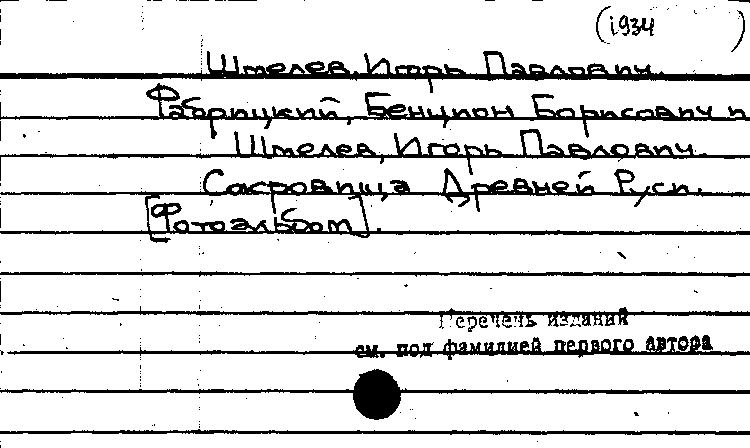 (1934 )
Шмелев, Игорь Павлович.
Фабрицкий, Бенцион Борисович и
Шмелев, Игорь Павлович.
Сокровища Древней Руси.
[Фотоальбом].
Перечень изданий
см. под фамилией первого автора